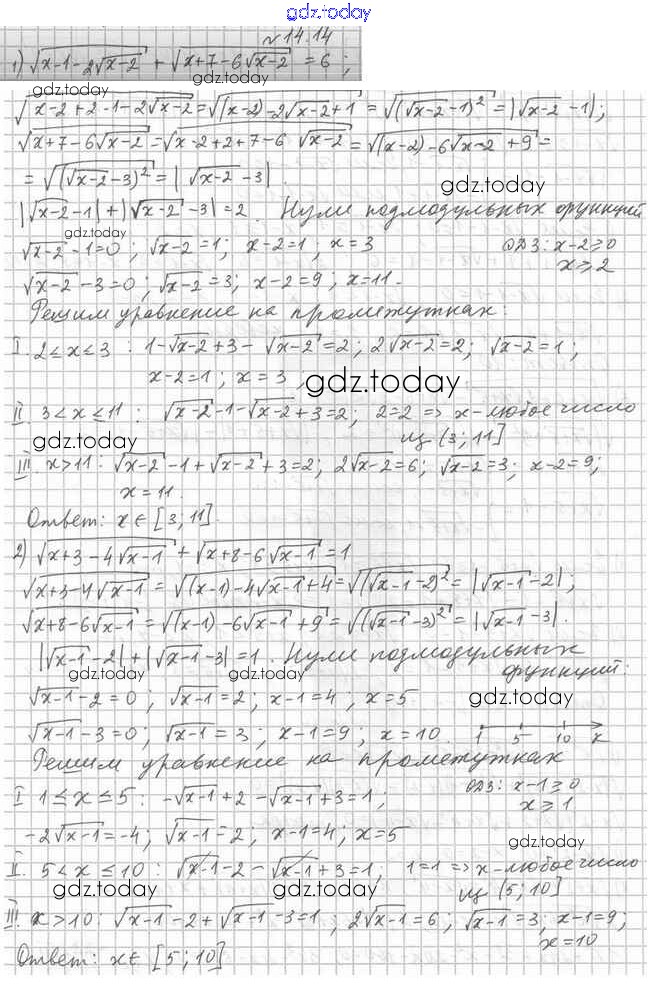 gdz.today
№14.14
1) √(x-1-2√(x-2)) + √(x+7-6√(x-2)) = 6;
gdz.today
√(x-2+2-1-2√(x-2)) = √((x-2)-2√(x-2)+1) = √((√(x-2)-1)²) = |√(x-2)-1|;
gdz.today
√(x+7-6√(x-2)) = √(x-2+2+7-6√(x-2)) = √((x-2)-6√(x-2)+9) =
= √((√(x-2)-3)²) = |√(x-2)-3|.
gdz.today
|√(x-2)-1|+|√(x-2)-3|=2. Нули подмодульных функций
gdz.today
√(x-2)-1=0; √(x-2)=1; x-2=1; x=3 ОДЗ: x-2≥0
x≥2
√(x-2)-3=0; √(x-2)=3; x-2=9; x=11.
Решим уравнение на промежутках:
I. 2≤x≤3: 1-√(x-2)+3-√(x-2)=2; 2√(x-2)=2; √(x-2)=1;
x-2=1; x=3
gdz.today
II. 3<x≤11: √(x-2)-1-√(x-2)+3=2; 2=2 ⇒ x-любое число
из (3;11]
gdz.today
III. x>11: √(x-2)-1+√(x-2)+3=2; 2√(x-2)=6; √(x-2)=3; x-2=9;
x=11.
Ответ: x∈[3;11].
gdz.today
2) √(x+3-4√(x-1)) + √(x+8-6√(x-1)) = 1
√(x+3-4√(x-1)) = √((x-1)-4√(x-1)+4) = √((√(x-1)-2)²) = |√(x-1)-2|;
gdz.today
√(x+8-6√(x-1)) = √((x-1)-6√(x-1)+9) = √((√(x-1)-3)²) = |√(x-1)-3|.
|√(x-1)-2|+|√(x-1)-3|=1. Нули подмодульных
функций:
gdz.today gdz.today
√(x-1)-2=0; √(x-1)=2; x-1=4; x=5
gdz.today
√(x-1)-3=0; √(x-1)=3; x-1=9; x=10. 1 5 10 x
Решим уравнение на промежутках
I 1≤x≤5: -√(x-1)+2-√(x-1)+3=1; ОДЗ: x-1≥0
x≥1
-2√(x-1)=-4; √(x-1)=2; x-1=4; x=5
gdz.today
II. 5<x≤10: √(x-1)-2-√(x-1)+3=1, 1=1 ⇒ x-любое число
из (5;10]
gdz.today gdz.today
III. x>10: √(x-1)-2+√(x-1)-3=1; 2√(x-1)=6; √(x-1)=3; x-1=9;
x=10
Ответ: x∈[5;10]
gdz.today